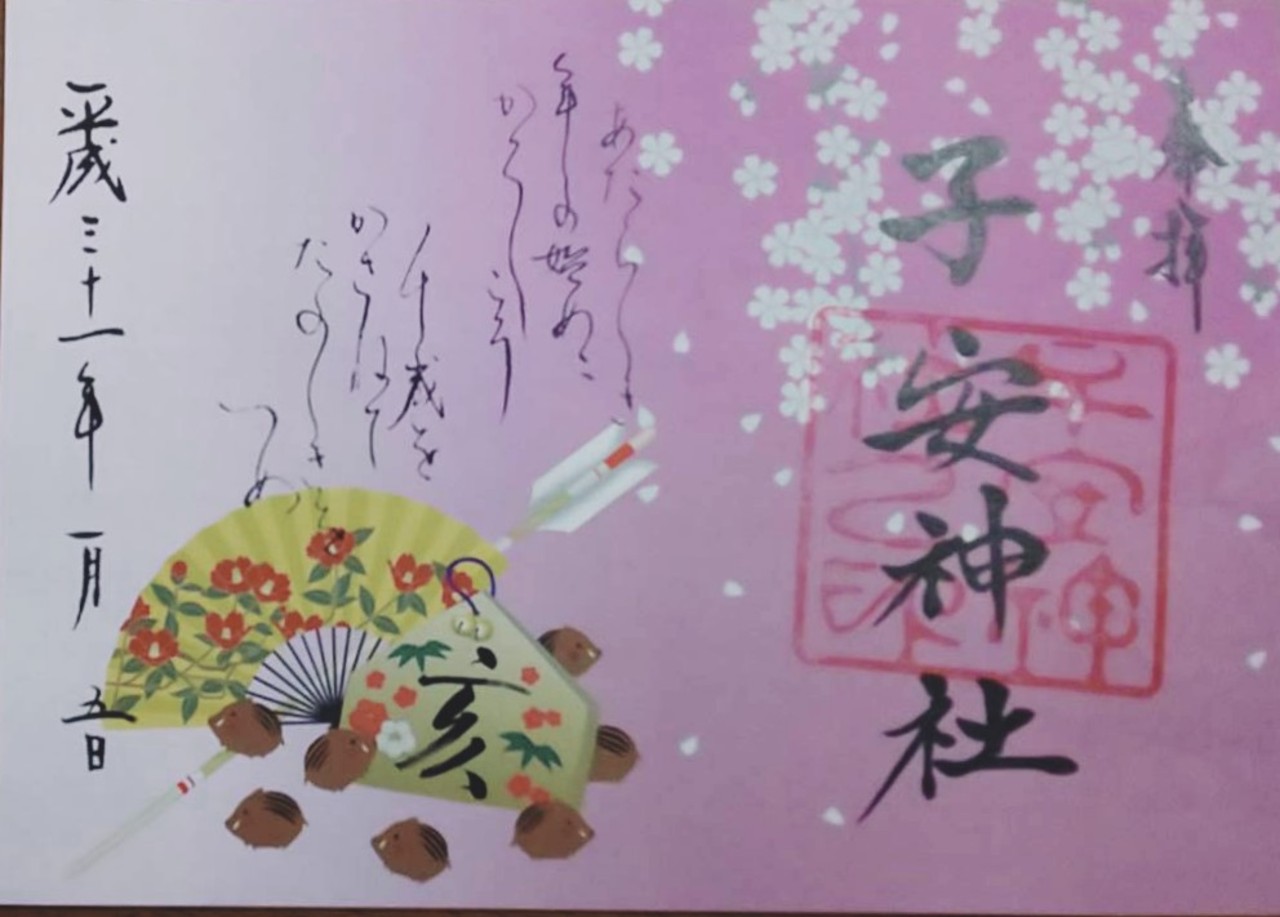 奉拝
子安神社
あたらしき
年の始めに
かくしこそ
千歳を
かさねて
たのしきを
つめ
亥
平成三十一年 一月 五日